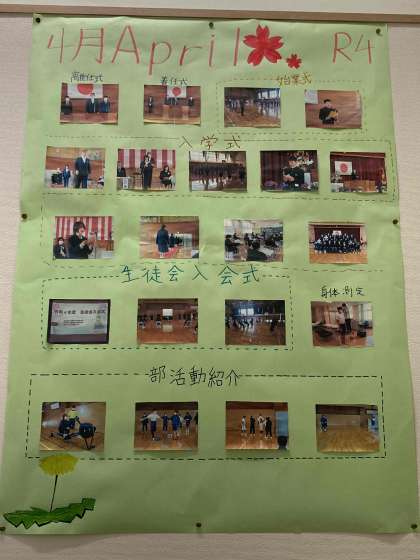 4月April R4
離任式 着任式 始業式
入学式
生徒会入会式
身体測定
部活動紹介